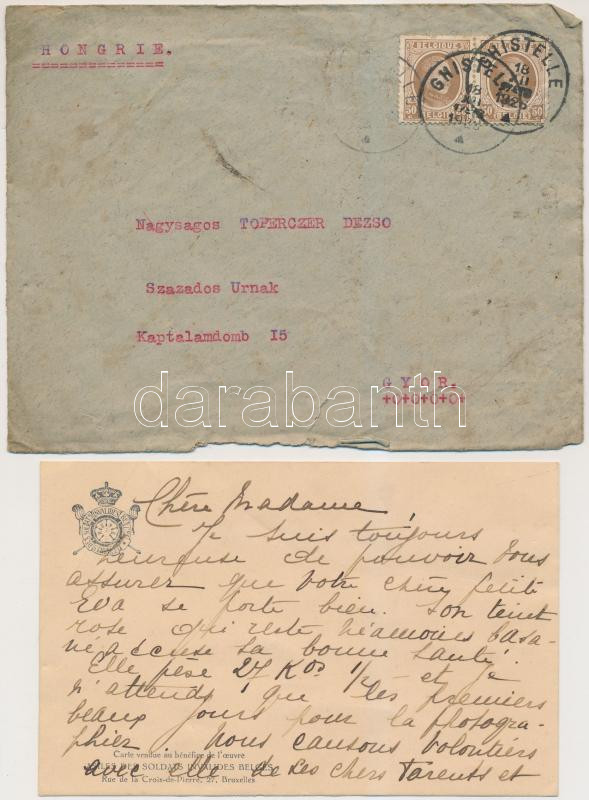 HONGRIE.
BELGIQUE BELGIE
50 50 50
GHISTELLE
18 XII 1925
GHISTELLE
18 XII
Nagysagos TOPERCZER DEZSO
Szazados Urnak
Kaptalamdomb I5
GYOR.
+O+O+O+O+
darabanth
Chère Madame,
Je suis toujours
heureuse de pouvoir vous
assurer que votre chère petite
Eva se porte bien. Son teint
rose qui reste néamoies basa-
né accuse sa bonne santé.
Elle pèse 27 Kos 1/2 et je
n'attends que les premiers
beaux jours pour la photogra-
phier. Nous causons volontiers
Carte vendue au bénéfice de l'œuvre
avec elle de Ses chers Parents et
DES SOLDATS INVALIDES BELGES
Rue de la Croix-de-Pierre, 27, Bruxelles